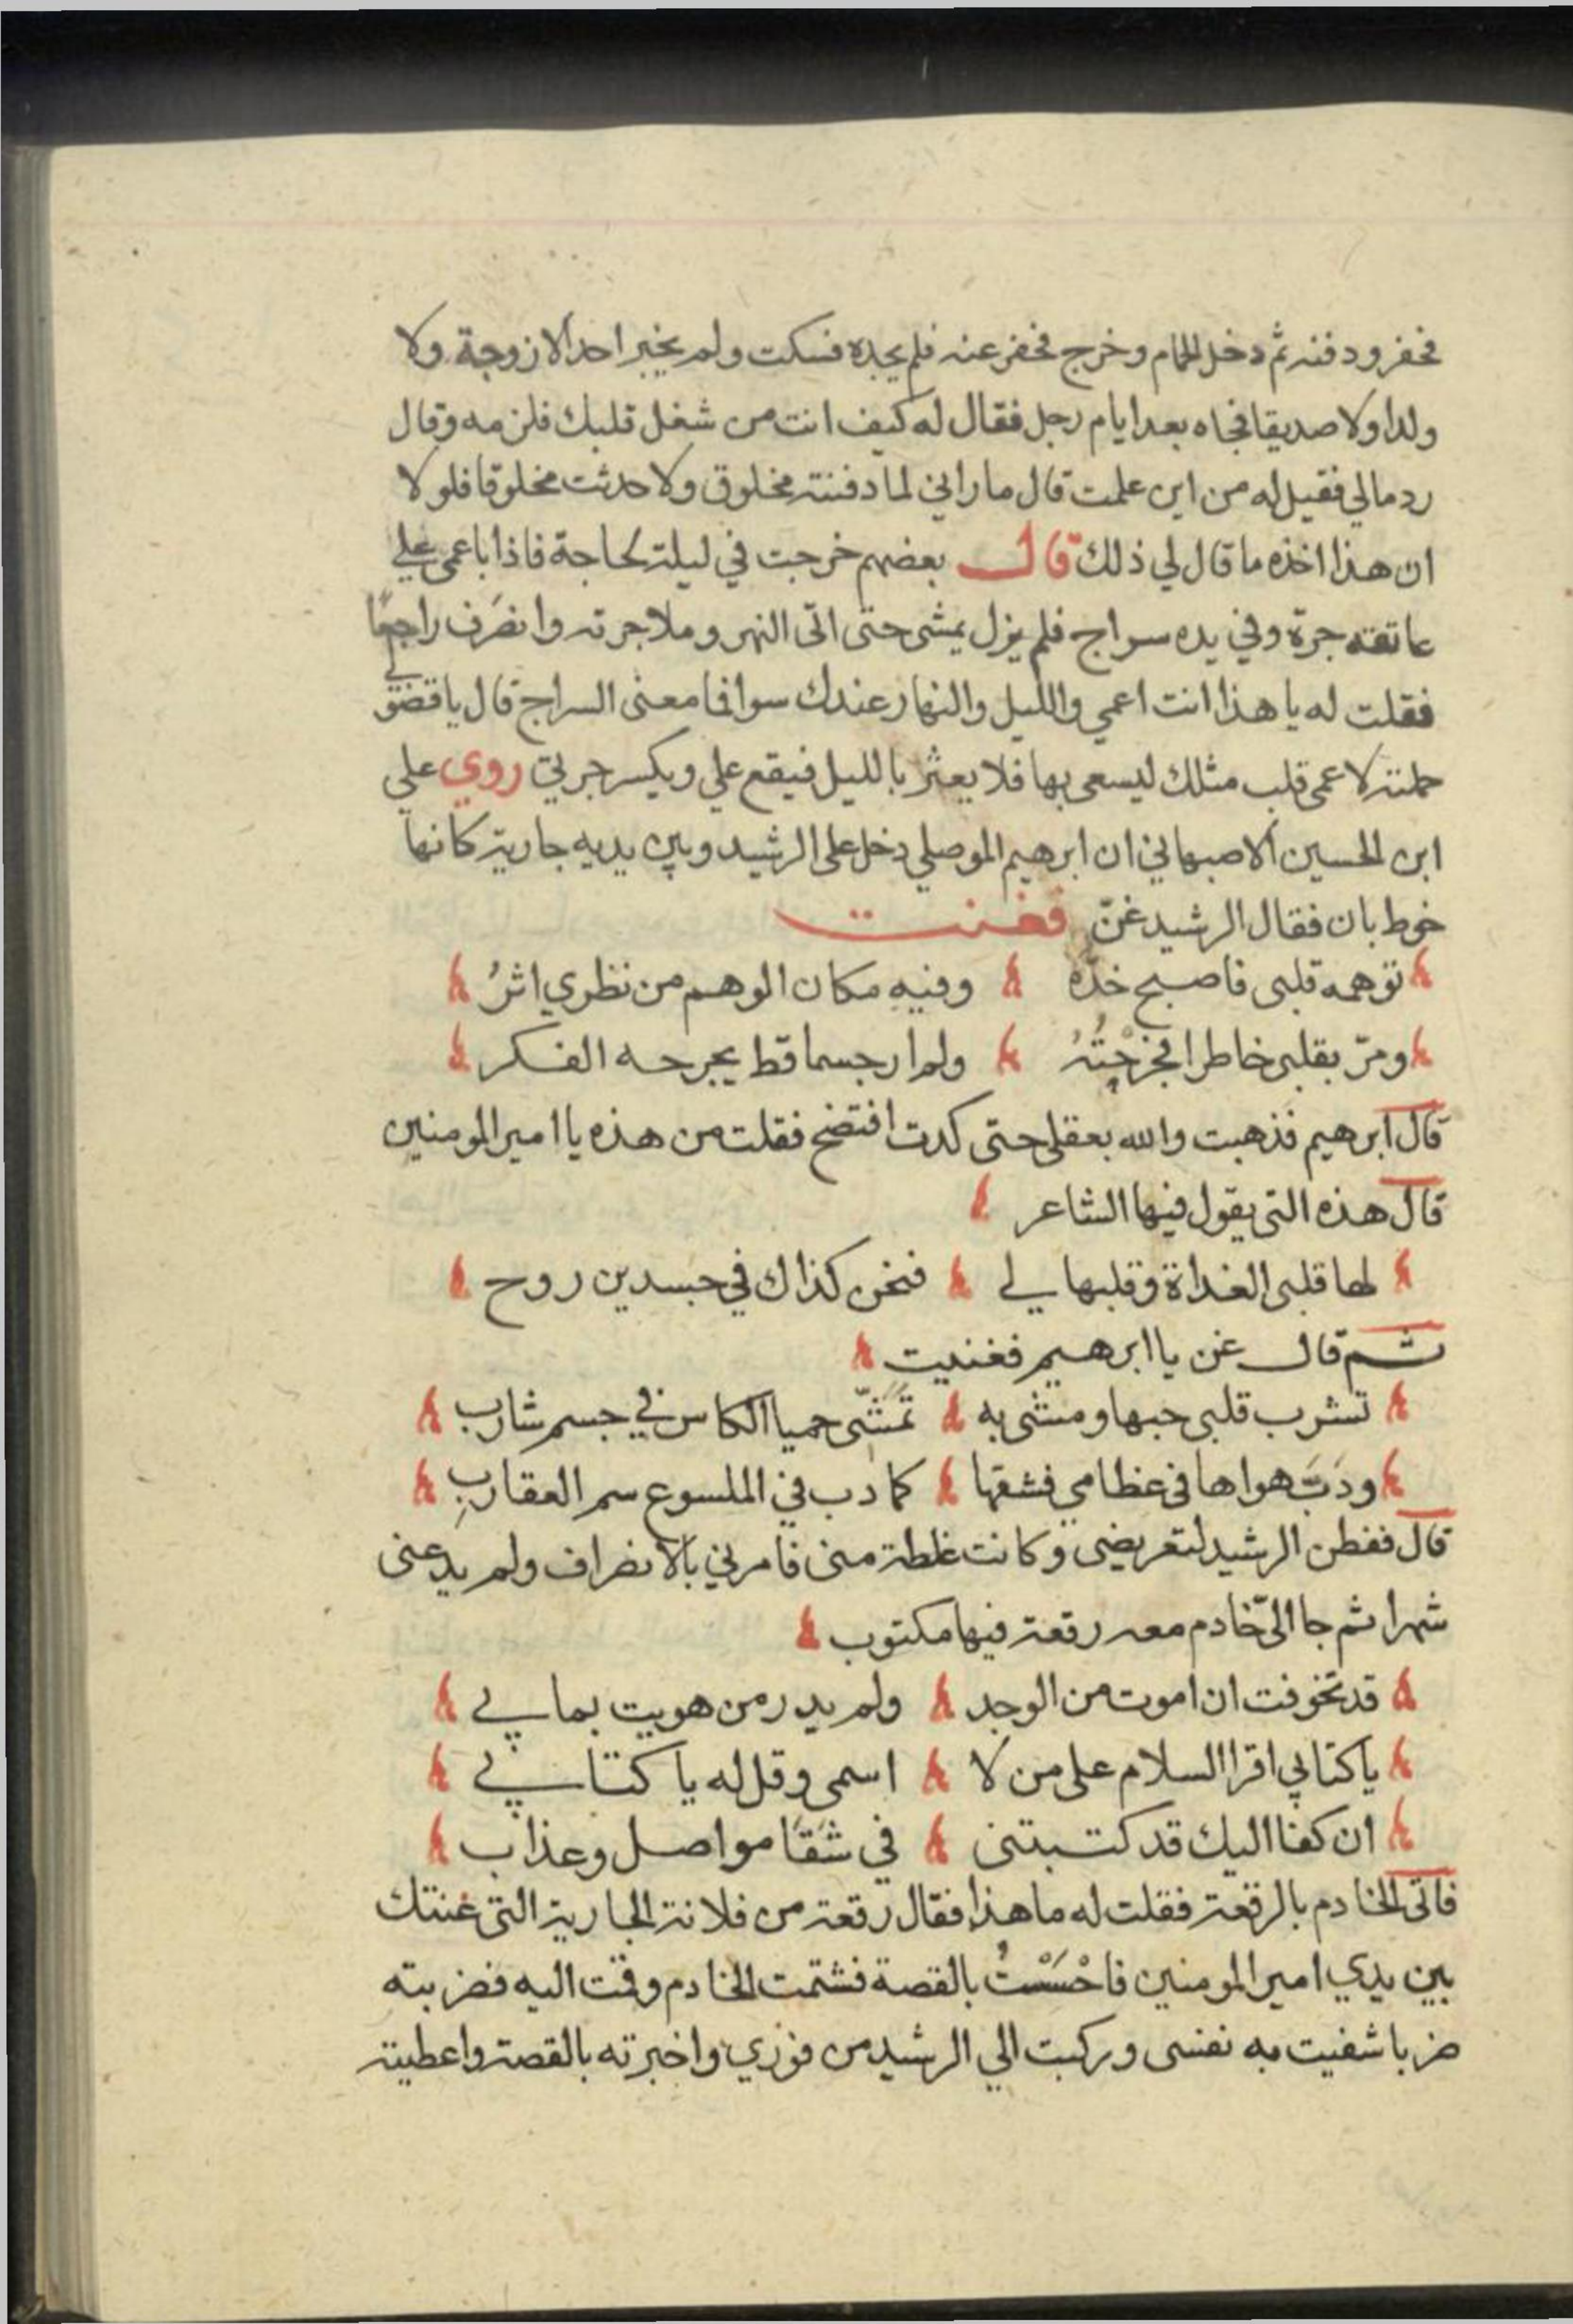 فحفر ودفنه ثم دخل الحمام وخرج فحفر عنه فلم يجده فسكت ولم يخبر احدا لا زوجة ولا
ولدا ولا صديقا فجاه بعد ايام رجل فقال له كيف انت من شغل قلبك فلزمه وقال
رد مالي فقيل له من اين علمت قال ما راني لما دفنته مخلوق ولا حدثت مخلوقا فلولا
ان هذا اخذه ما قال لي ذلك قال بعضهم خرجت في ليلة لحاجة فاذا باعمى على
عاتقه جرة وفي يده سراج فلم يزل يمشى حتى اتى النهر وملا جرته وانصَرف راجعًا
فقلت له يا هذا انت اعمي والليل والنهار عندك سوا فما معنى السراج قال يا فضولي
حملته لاعمى قلب مثلك ليسعى بها فلا يعثر بالليل فيقع علي ويكسر جرتي روي علي
ابن الحسين الاصبهاني ان ابرهيم الموصلي دخل على الرشيد وبين يديه جارية كانها
خوط بان فقال الرشيد غنّ فغنت
توهمه قلبى فاصبح خدّه وفيه مكان الوهم من نظري اثرُ
ومرّ بقلبى خاطرا فجرحْتُهُ ولم ار جسما قط يجرحه الفكر
قال ابرهيم فذهبت والله بعقلى حتى كدت افتضح فقلت من هذه يا امير المومنين
قال هذه التى يقول فيها الشاعر
لها قلبى الغداة وقلبها لي فنحن كذاك في جسدين روح
ثم قال غن يا ابرهيم فغنيت
تشرب قلبى حبها ومشى به تَمَشّى حميا الكاس في جسم شارب
ودَبَّ هواها فى عظامي فشقها كما دب في الملسوع سم العقاربِ
قال ففطن الرشيد لتعريضى وكانت غلطة منى فامرني بالانصراف ولم يدعنى
شهرا ثم جا اليّ خادم معه رقعة فيها مكتوب
قد تخوفت ان اموت من الوجد ولم يدر من هويت بما بي
يا كتابي اقرا السلام على من لا اسمى وقل له يا كتابي
ان كفا اليك قد كتبتنى في شَقَا مواصل وعذاب
فاتى الخادم بالرقعة فقلت له ما هذا فقال رقعة من فلانة الجارية التى غنتك
بين يدي امير المومنين فاحْسَسْتُ بالقصة فشتمت الخادم وقمت اليه فضربته
ضربا شفيت به نفسى وركبت الي الرشيد من فوري واخبرته بالقصة واعطيته